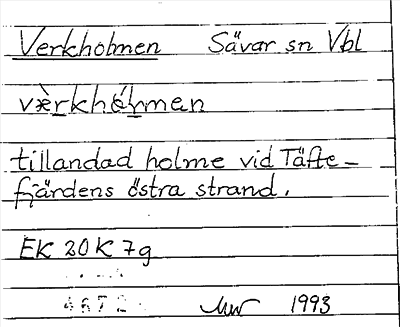 Verkholmen Sävar sn Vbl
tillandad holme vid Täfte-
fjärdens östra strand.
EK 20K 7g
1993